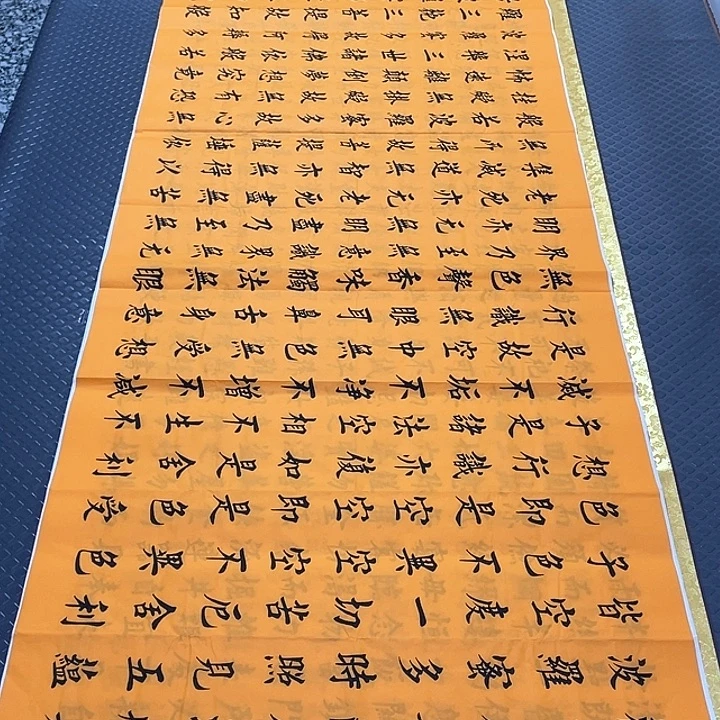 波羅蜜多時照見五蘊
皆空度一切苦厄舍利
子色不異空空不異色
色即是空空即是色受
想行識亦復如是舍利
子是諸法空相不生不
滅不垢不淨不增不減
是故空中無色無受想
行識無眼耳鼻舌身意
無色聲香味觸法無眼
界乃至無意識界無无
明亦无無明盡乃至無
老死亦无老死盡無苦
集滅道無智亦無得以
無所得故菩提薩埵依
般若波羅蜜多故心無
掛礙無掛礙故無有恐
怖遠離顛倒夢想究竟
涅槃三世諸佛依般若
波羅蜜多故得阿耨多
羅三藐三菩提故知般